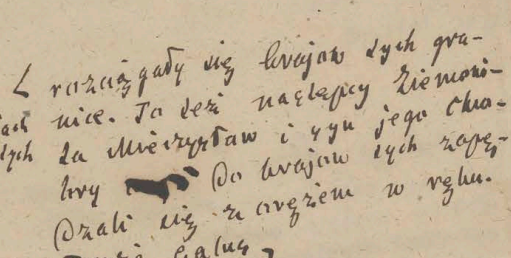 rozciągały się krajow tych gra-
nice. To też następcy Ziemomi-
sła Mieczysław i syn jego Chro-
bry do krajow tych zapę-
dzali się z orężem w ręku.